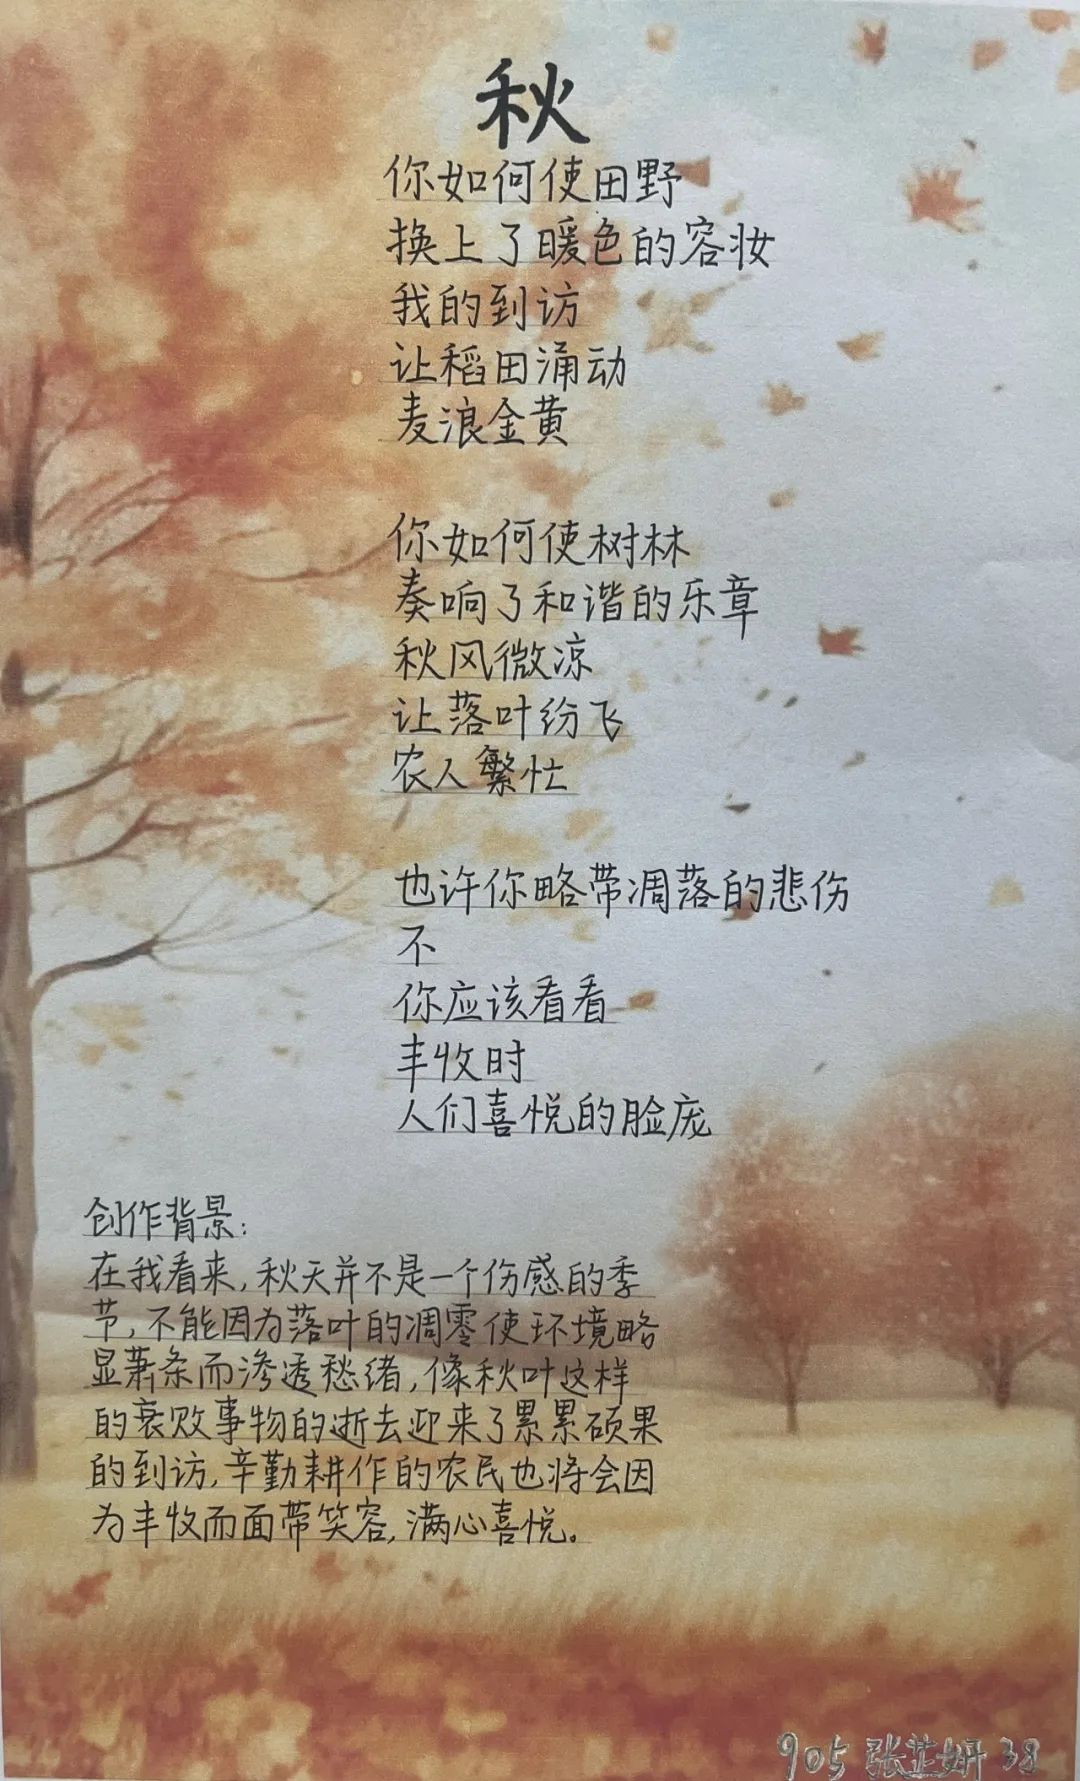 秋
你如何使田野
换上了暖色的容妆
我的到访
让稻田涌动
麦浪金黄
你如何使树林
奏响了和谐的乐章
秋风微凉
让落叶纷飞
农人繁忙
也许你略带凋落的悲伤
不
你应该看看
丰收时
人们喜悦的脸庞
创作背景:
在我看来,秋天并不是一个伤感的季
节,不能因为落叶的凋零使环境略
显萧条而渗透愁绪,像秋叶这样
的衰败事物的逝去迎来了累累硕果
的到访,辛勤耕作的农民也将会因
为丰收而面带笑容,满心喜悦。
905 张芷妍 38